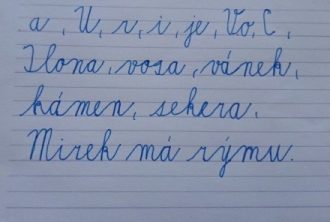 a, U, r, i, je, Vo, C,
Ilona, vosa, vánek,
kámen, sekera.
Mirek má rýmu.